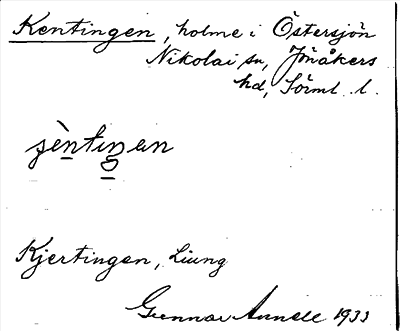 Kentingen, holme i Östersjön
Nikolai sn, Jönåkers
hd, Sörml. l.
jèntiŋan
Kjertingen, Liung
Gunnar Annell 1933